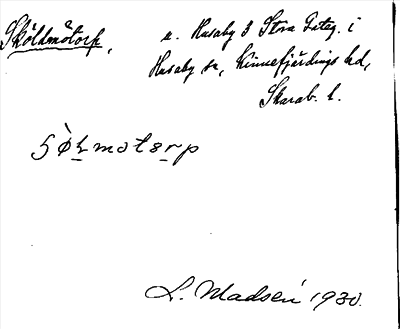 Sköldmötorp, u. Husaby 3 Stora Gateg. i
Husaby sn, Kinnefjärdings hd,
Skarab. l.
5 ö̀ ɫ m o t ə r p
L. Madsén 1930.